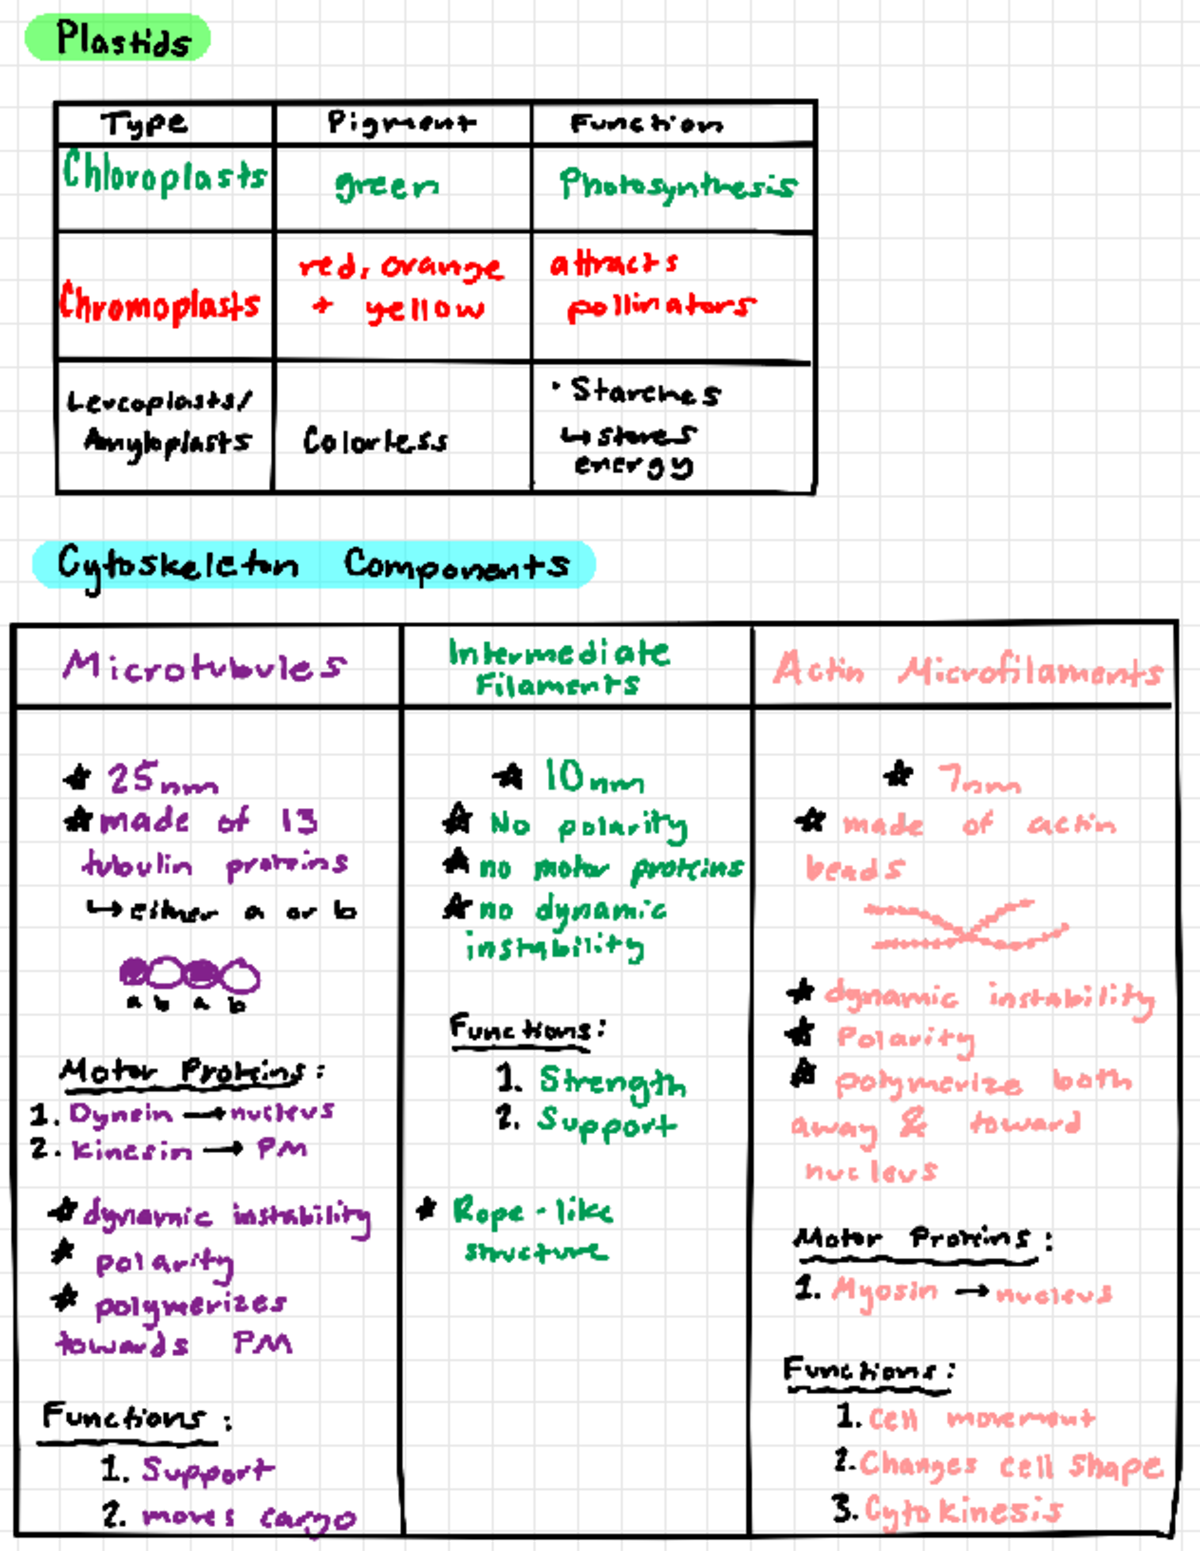 Plastids
Type Pigment Function
Chloroplasts green Photosynthesis
Chromoplasts red, orange + yellow attracts pollinators
Leucoplasts/ Amyloplasts Colorless • Starches ↳ stores energy
Cytoskeleton Components
Microtubules
Intermediate
Filaments
Actin Microfilaments
★ 25nm
★ made of 13
tubulin proteins
↳ either a or b
a b a b
Motor Proteins:
1. Dynein → nucleus
2. Kinesin → PM
★ dynamic instability
★ polarity
★ polymerizes
towards PM
Functions:
1. Support
2. moves cargo
★ 10nm
★ No polarity
★ no motor proteins
★ no dynamic
instability
Functions:
1. Strength
2. Support
★ Rope-like
structure
★ 7nm
★ made of actin
beads
★ dynamic instability
★ Polarity
★ polymerize both
away & toward
nucleus
Motor Proteins:
1. Myosin → nucleus
Functions:
1. Cell movement
2. Changes cell shape
3. Cytokinesis